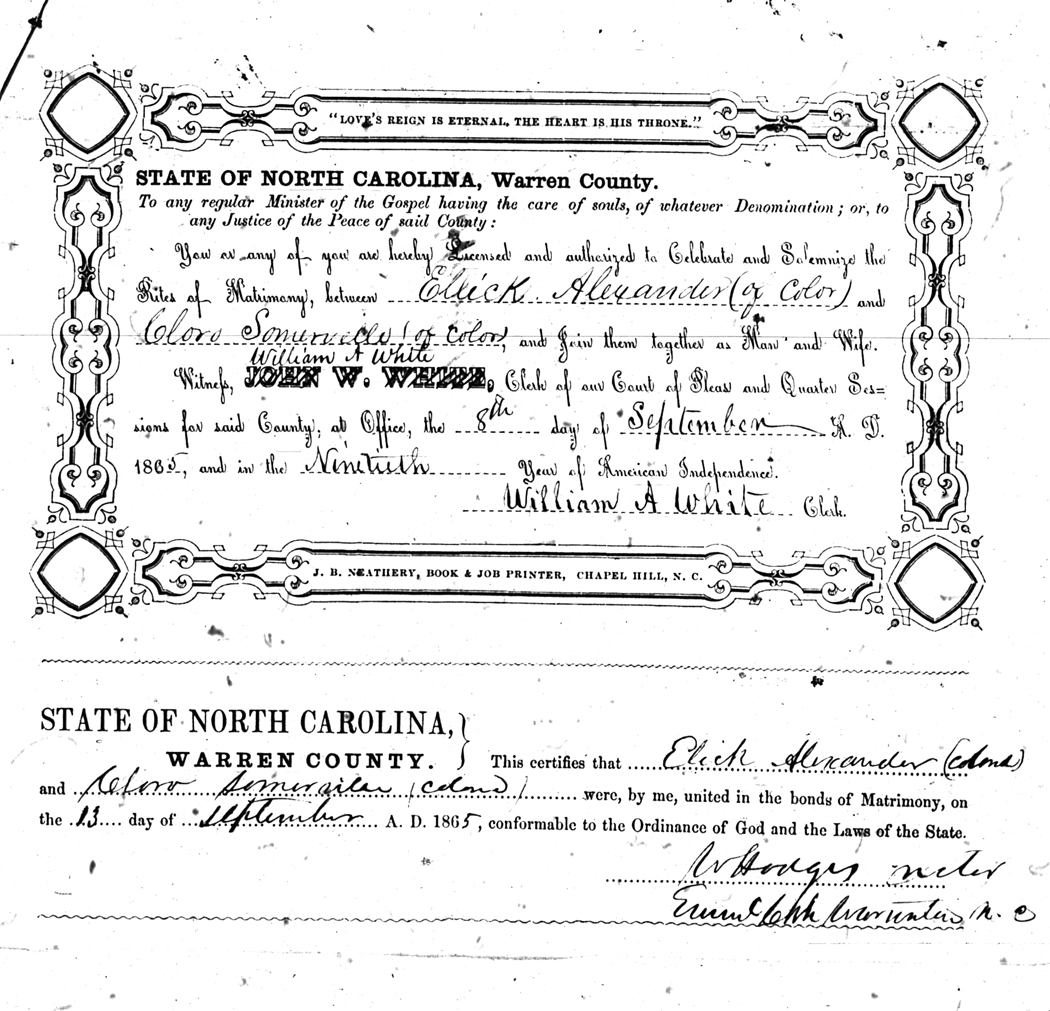 "LOVE'S REIGN IS ETERNAL, THE HEART IS HIS THRONE."
STATE OF NORTH CAROLINA, Warren County.
To any regular Minister of the Gospel having the care of souls, of whatever Denomination; or, to
any Justice of the Peace of said County:
You or any of you are hereby Licensed and authorized to Celebrate and Solemnize the
Rites of Matrimony, between Ellick Alexander (of Color) and
Cloro Somerville (of Color), and Join them together as Man and Wife.
William A White
Witness, JOHN W. WHITE, Clerk of our Court of Pleas and Quarter Ses=
sions for said County, at Office, the 8th day of September A. D.
1865, and in the Ninetieth Year of American Independence.
William A White Clerk.
J. B. NEATHERY, BOOK & JOB PRINTER, CHAPEL HILL, N. C.
STATE OF NORTH CAROLINA,
WARREN COUNTY. } This certifies that Elick Alexander (colord)
and Cloro Somerviler (colord) were, by me, united in the bonds of Matrimony, on
the 13 day of September A. D. 1865, conformable to the Ordinance of God and the Laws of the State.
W Hodges
N. C